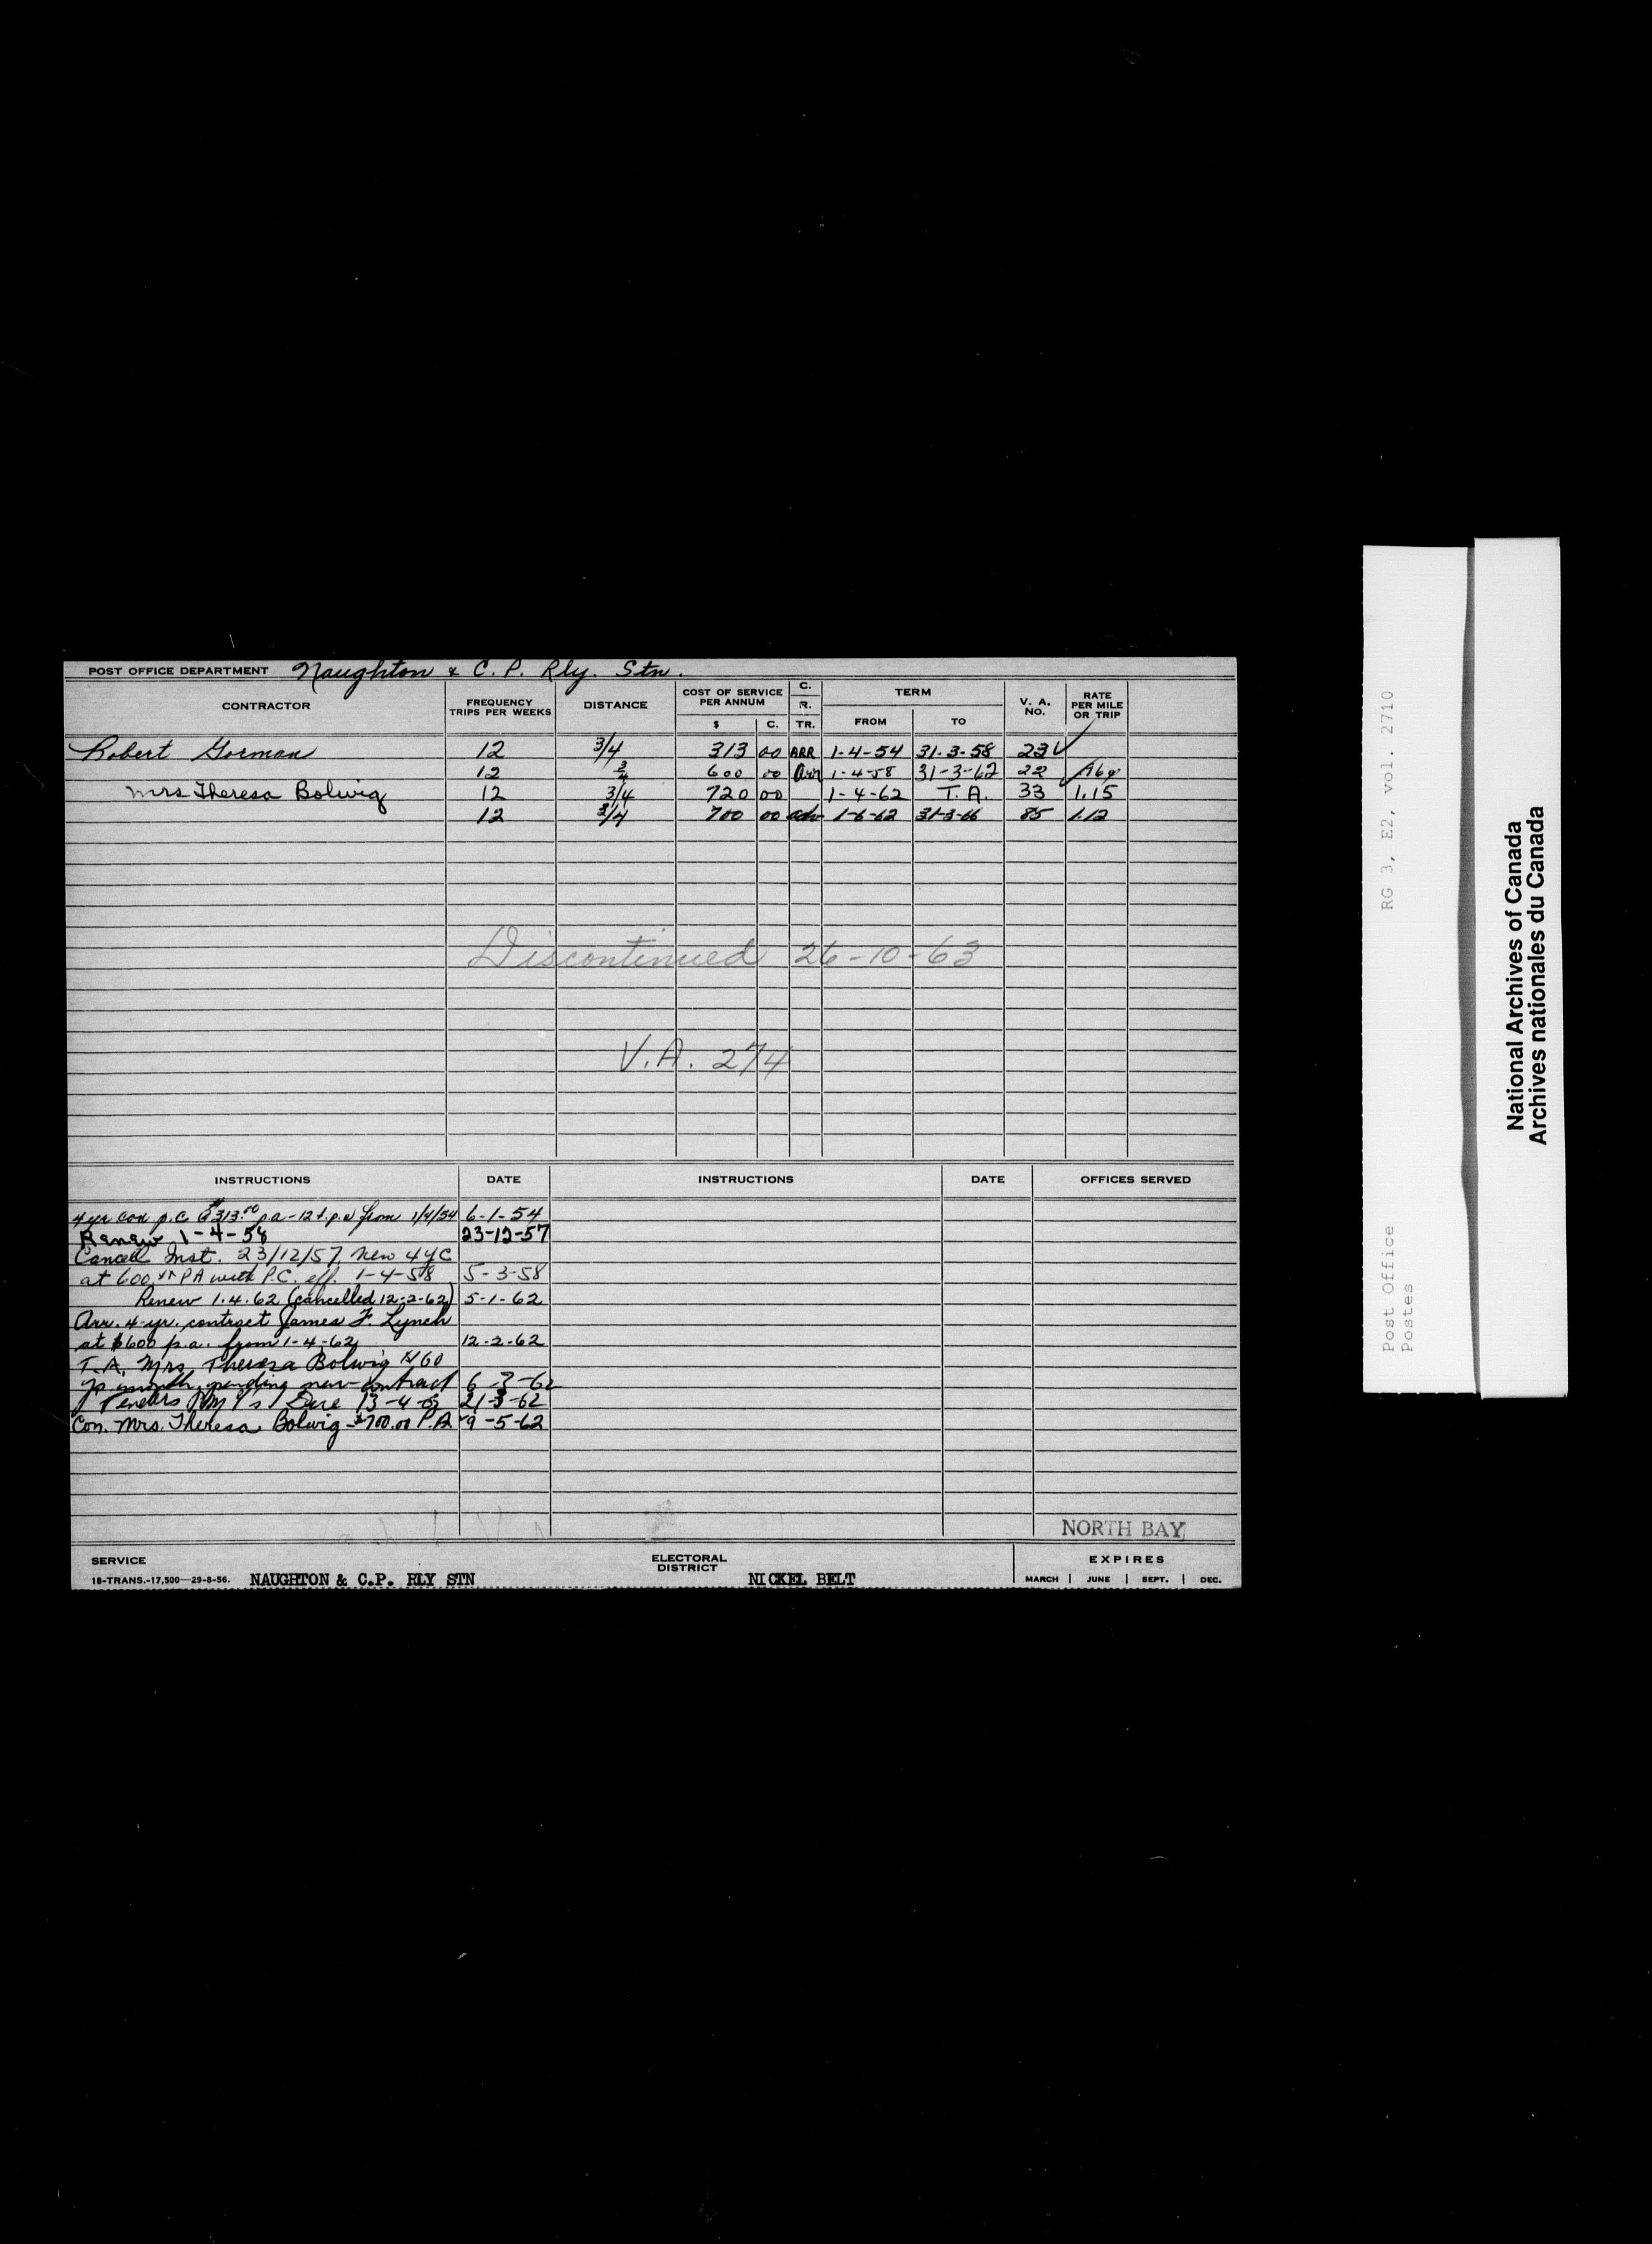 POST OFFICE DEPARTMENT Naughton & C. P. Rly. Stn.
CONTRACTOR FREQUENCY TRIPS PER WEEKS DISTANCE COST OF SERVICE PER ANNUM $ C. C. R. TR. TERM FROM TO V. A. NO. RATE PER MILE OR TRIP
Robert Gorman 12 3/4 313 00 ARR 1-4-54 31-3-58 23
12 3/4 600 00 Arr 1-4-58 31-3-62 22 .96
Mrs Theresa Bolwig 12 3/4 720 00 1-4-62 T.A. 33 1.15
12 3/4 700 00 1-6-62 31-3-66 85 1.12
Discontinued 26-10-63
V.A. 274
INSTRUCTIONS DATE INSTRUCTIONS DATE OFFICES SERVED
4 yr con p.c @ $313.00 p.a - 12 t.p.w from 1/4/54 6-1-54
Renew 1-4-58 23-12-57
Cancel Inst. 23/12/57, New 4 YC
at 600 PA with P.C. eff. 1-4-58 5-3-58
Renew 1.4.62 (cancelled 12-2-62) 5-1-62
Arr. 4-yr. contract James F. Lynch
at $600 p.a. from 1-4-62 12-2-62
T.A. Mrs. Theresa Bolwig $60
month, pending new contract 6-3-62
Due 13-4-62 21-3-62
Con. Mrs. Theresa Bolwig - $700.00 P.A 9-5-62
NORTH BAY
SERVICE
18-TRANS.-17,500—29-8-56. NAUGHTON & C.P. RLY STN
ELECTORAL DISTRICT NICKEL BELT
EXPIRES
MARCH | JUNE | SEPT. | DEC.
Post Office RG 3, E2, vol. 2710
Postes
National Archives of Canada
Archives nationales du Canada